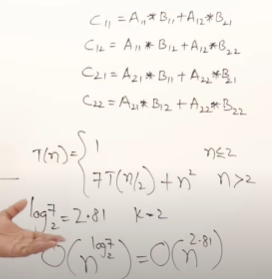 C₁₁ = A₁₁ * B₁₁ + A₁₂ * B₂₁
C₁₂ = A₁₁ * B₁₂ + A₁₂ * B₂₂
C₂₁ = A₂₁ * B₁₁ + A₂₂ * B₂₁
C₂₂ = A₂₁ * B₁₂ + A₂₂ * B₂₂
T(n) = { 1 n≤2
7T(n/2) + n² n>2
log₂7 = 2.81 k=2
O(n^log₂7) = O(n^2.81)